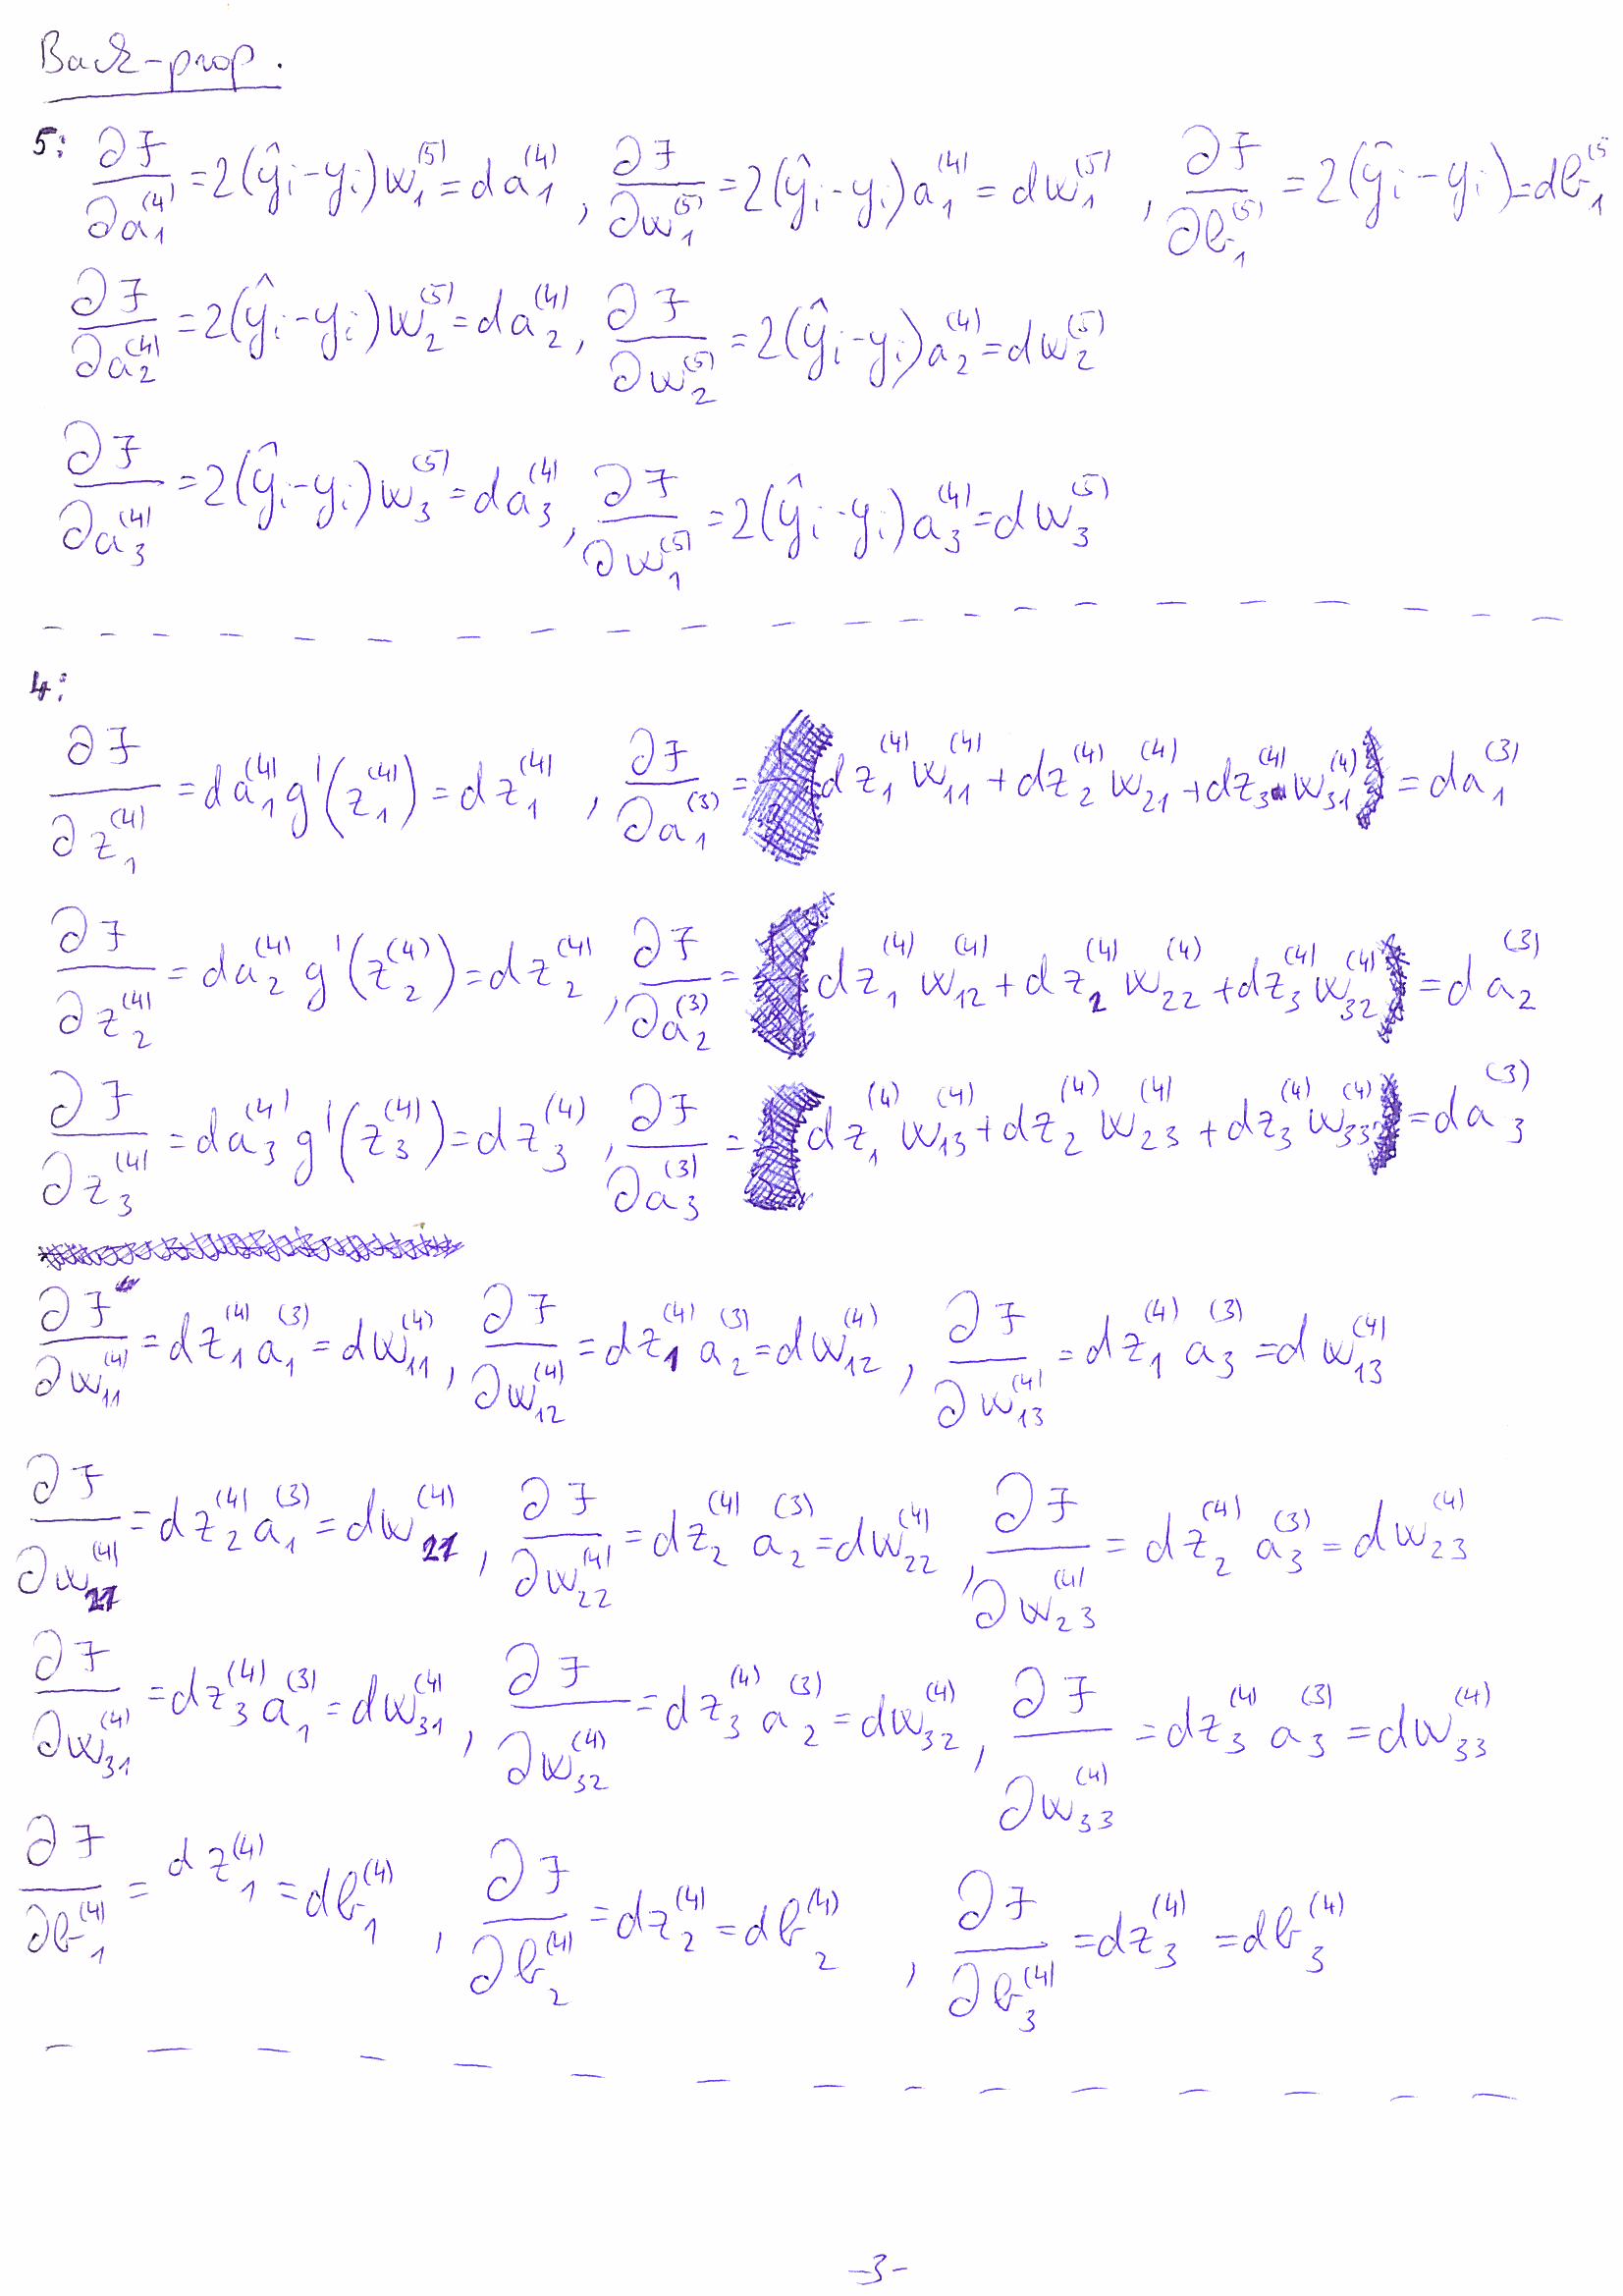 Back-prop.
5: ∂J/∂a₁⁽⁴⁾ = 2(ŷᵢ-yᵢ)w₁⁽⁵⁾ = da₁⁽⁴⁾ , ∂J/∂w₁⁽⁵⁾ = 2(ŷᵢ-yᵢ)a₁⁽⁴⁾ = dw₁⁽⁵⁾ , ∂J/∂b₁⁽⁵⁾ = 2(ŷᵢ-yᵢ) = db₁⁽⁵
∂J/∂a₂⁽⁴⁾ = 2(ŷᵢ-yᵢ)w₂⁽⁵⁾ = da₂⁽⁴⁾ , ∂J/∂w₂⁽⁵⁾ = 2(ŷᵢ-yᵢ)a₂⁽⁴⁾ = dw₂⁽⁵⁾
∂J/∂a₃⁽⁴⁾ = 2(ŷᵢ-yᵢ)w₃⁽⁵⁾ = da₃⁽⁴⁾ , ∂J/∂w₁⁽⁵⁾ = 2(ŷᵢ-yᵢ)a₃⁽⁴⁾ = dw₃⁽⁵⁾
4:
∂J/∂z₁⁽⁴⁾ = da₁⁽⁴⁾ g'(z₁⁽⁴⁾) = dz₁⁽⁴⁾ , ∂J/∂a₁⁽³⁾ = dz₁⁽⁴⁾ w₁₁⁽⁴⁾ + dz₂⁽⁴⁾ w₂₁⁽⁴⁾ + dz₃⁽⁴⁾ w₃₁⁽⁴⁾ = da₁⁽³⁾
∂J/∂z₂⁽⁴⁾ = da₂⁽⁴⁾ g'(z₂⁽⁴⁾) = dz₂⁽⁴⁾ , ∂J/∂a₂⁽³⁾ = dz₁⁽⁴⁾ w₁₂⁽⁴⁾ + dz₂⁽⁴⁾ w₂₂⁽⁴⁾ + dz₃⁽⁴⁾ w₃₂⁽⁴⁾ = da₂⁽³⁾
∂J/∂z₃⁽⁴⁾ = da₃⁽⁴⁾ g'(z₃⁽⁴⁾) = dz₃⁽⁴⁾ , ∂J/∂a₃⁽³⁾ = dz₁⁽⁴⁾ w₁₃⁽⁴⁾ + dz₂⁽⁴⁾ w₂₃⁽⁴⁾ + dz₃⁽⁴⁾ w₃₃⁽⁴⁾ = da₃⁽³⁾
∂J/∂w₁₁⁽⁴⁾ = dz₁⁽⁴⁾ a₁⁽³⁾ = dw₁₁⁽⁴⁾ , ∂J/∂w₁₂⁽⁴⁾ = dz₁⁽⁴⁾ a₂⁽³⁾ = dw₁₂⁽⁴⁾ , ∂J/∂w₁₃⁽⁴⁾ = dz₁⁽⁴⁾ a₃⁽³⁾ = dw₁₃⁽⁴⁾
∂J/∂w₂₁⁽⁴⁾ = dz₂⁽⁴⁾ a₁⁽³⁾ = dw₂₁⁽⁴⁾ , ∂J/∂w₂₂⁽⁴⁾ = dz₂⁽⁴⁾ a₂⁽³⁾ = dw₂₂⁽⁴⁾ , ∂J/∂w₂₃⁽⁴⁾ = dz₂⁽⁴⁾ a₃⁽³⁾ = dw₂₃⁽⁴⁾
∂J/∂w₃₁⁽⁴⁾ = dz₃⁽⁴⁾ a₁⁽³⁾ = dw₃₁⁽⁴⁾ , ∂J/∂w₃₂⁽⁴⁾ = dz₃⁽⁴⁾ a₂⁽³⁾ = dw₃₂⁽⁴⁾ , ∂J/∂w₃₃⁽⁴⁾ = dz₃⁽⁴⁾ a₃⁽³⁾ = dw₃₃⁽⁴⁾
∂J/∂b₁⁽⁴⁾ = dz₁⁽⁴⁾ = db₁⁽⁴⁾ , ∂J/∂b₂⁽⁴⁾ = dz₂⁽⁴⁾ = db₂⁽⁴⁾ , ∂J/∂b₃⁽⁴⁾ = dz₃⁽⁴⁾ = db₃⁽⁴⁾
-3-